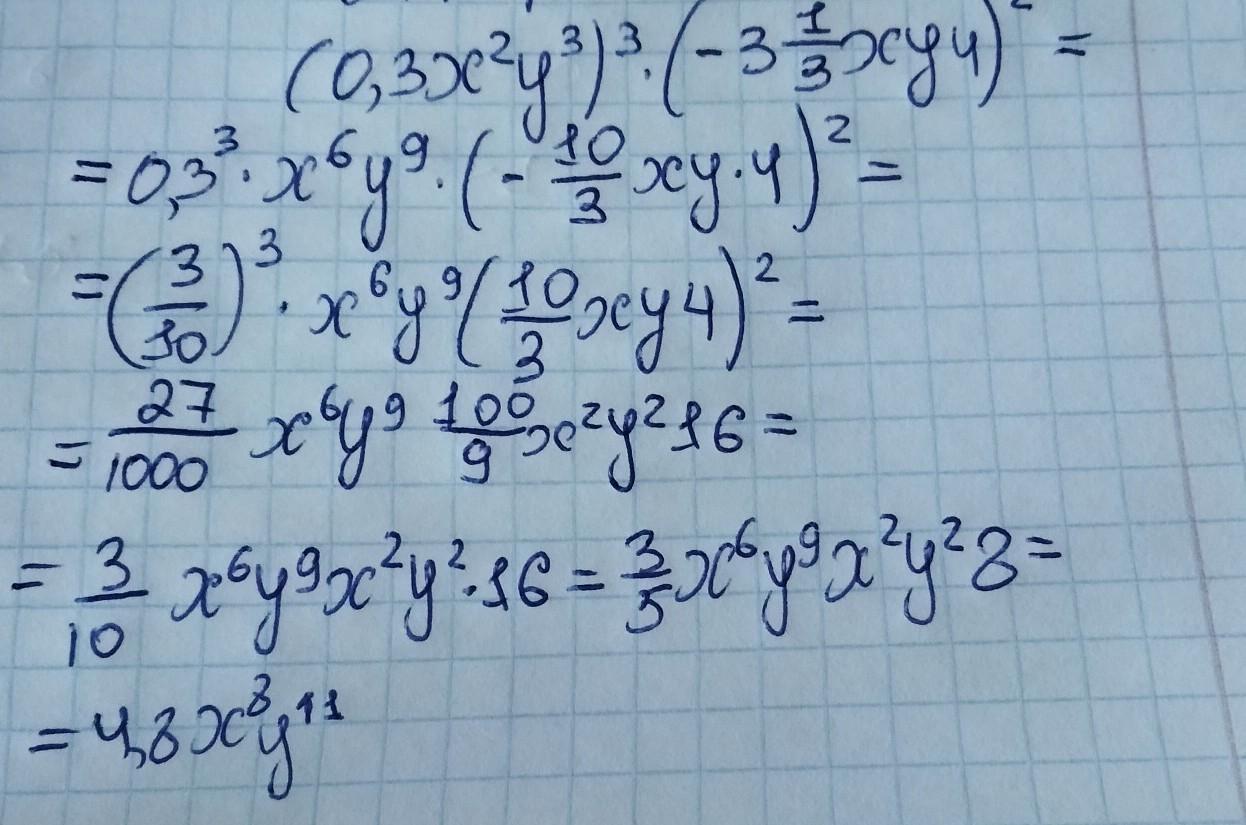 (0,3x²y³)³·(-3 1/3 xy4)² =
= 0,3³·x⁶y⁹·(-10/3 xy·4)² =
= (3/10)³·x⁶y⁹(10/3 xy4)² =
= 27/1000 x⁶y⁹ 100/9 x²y²16 =
= 3/10 x⁶y⁹x²y²·16 = 3/5 x⁶y⁹x²y²8 =
= 4,8x⁸y¹¹